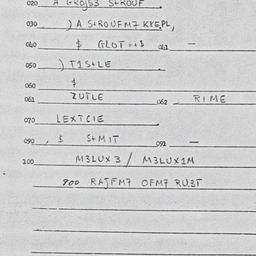 020 A GROJ53 S+ROUF
030 ) A S+ROUFM7 KKEPL,
040 $ GLOT ++$ 041 —
050 ) T1S+LE
060 $
061 ZUTLE 062 RIME
070 LEXTCIE
090 , $ S+MIT 091 —
100 M3LUX3 / M3LUX1M
900 RAJFM7 OFM7 RU3T